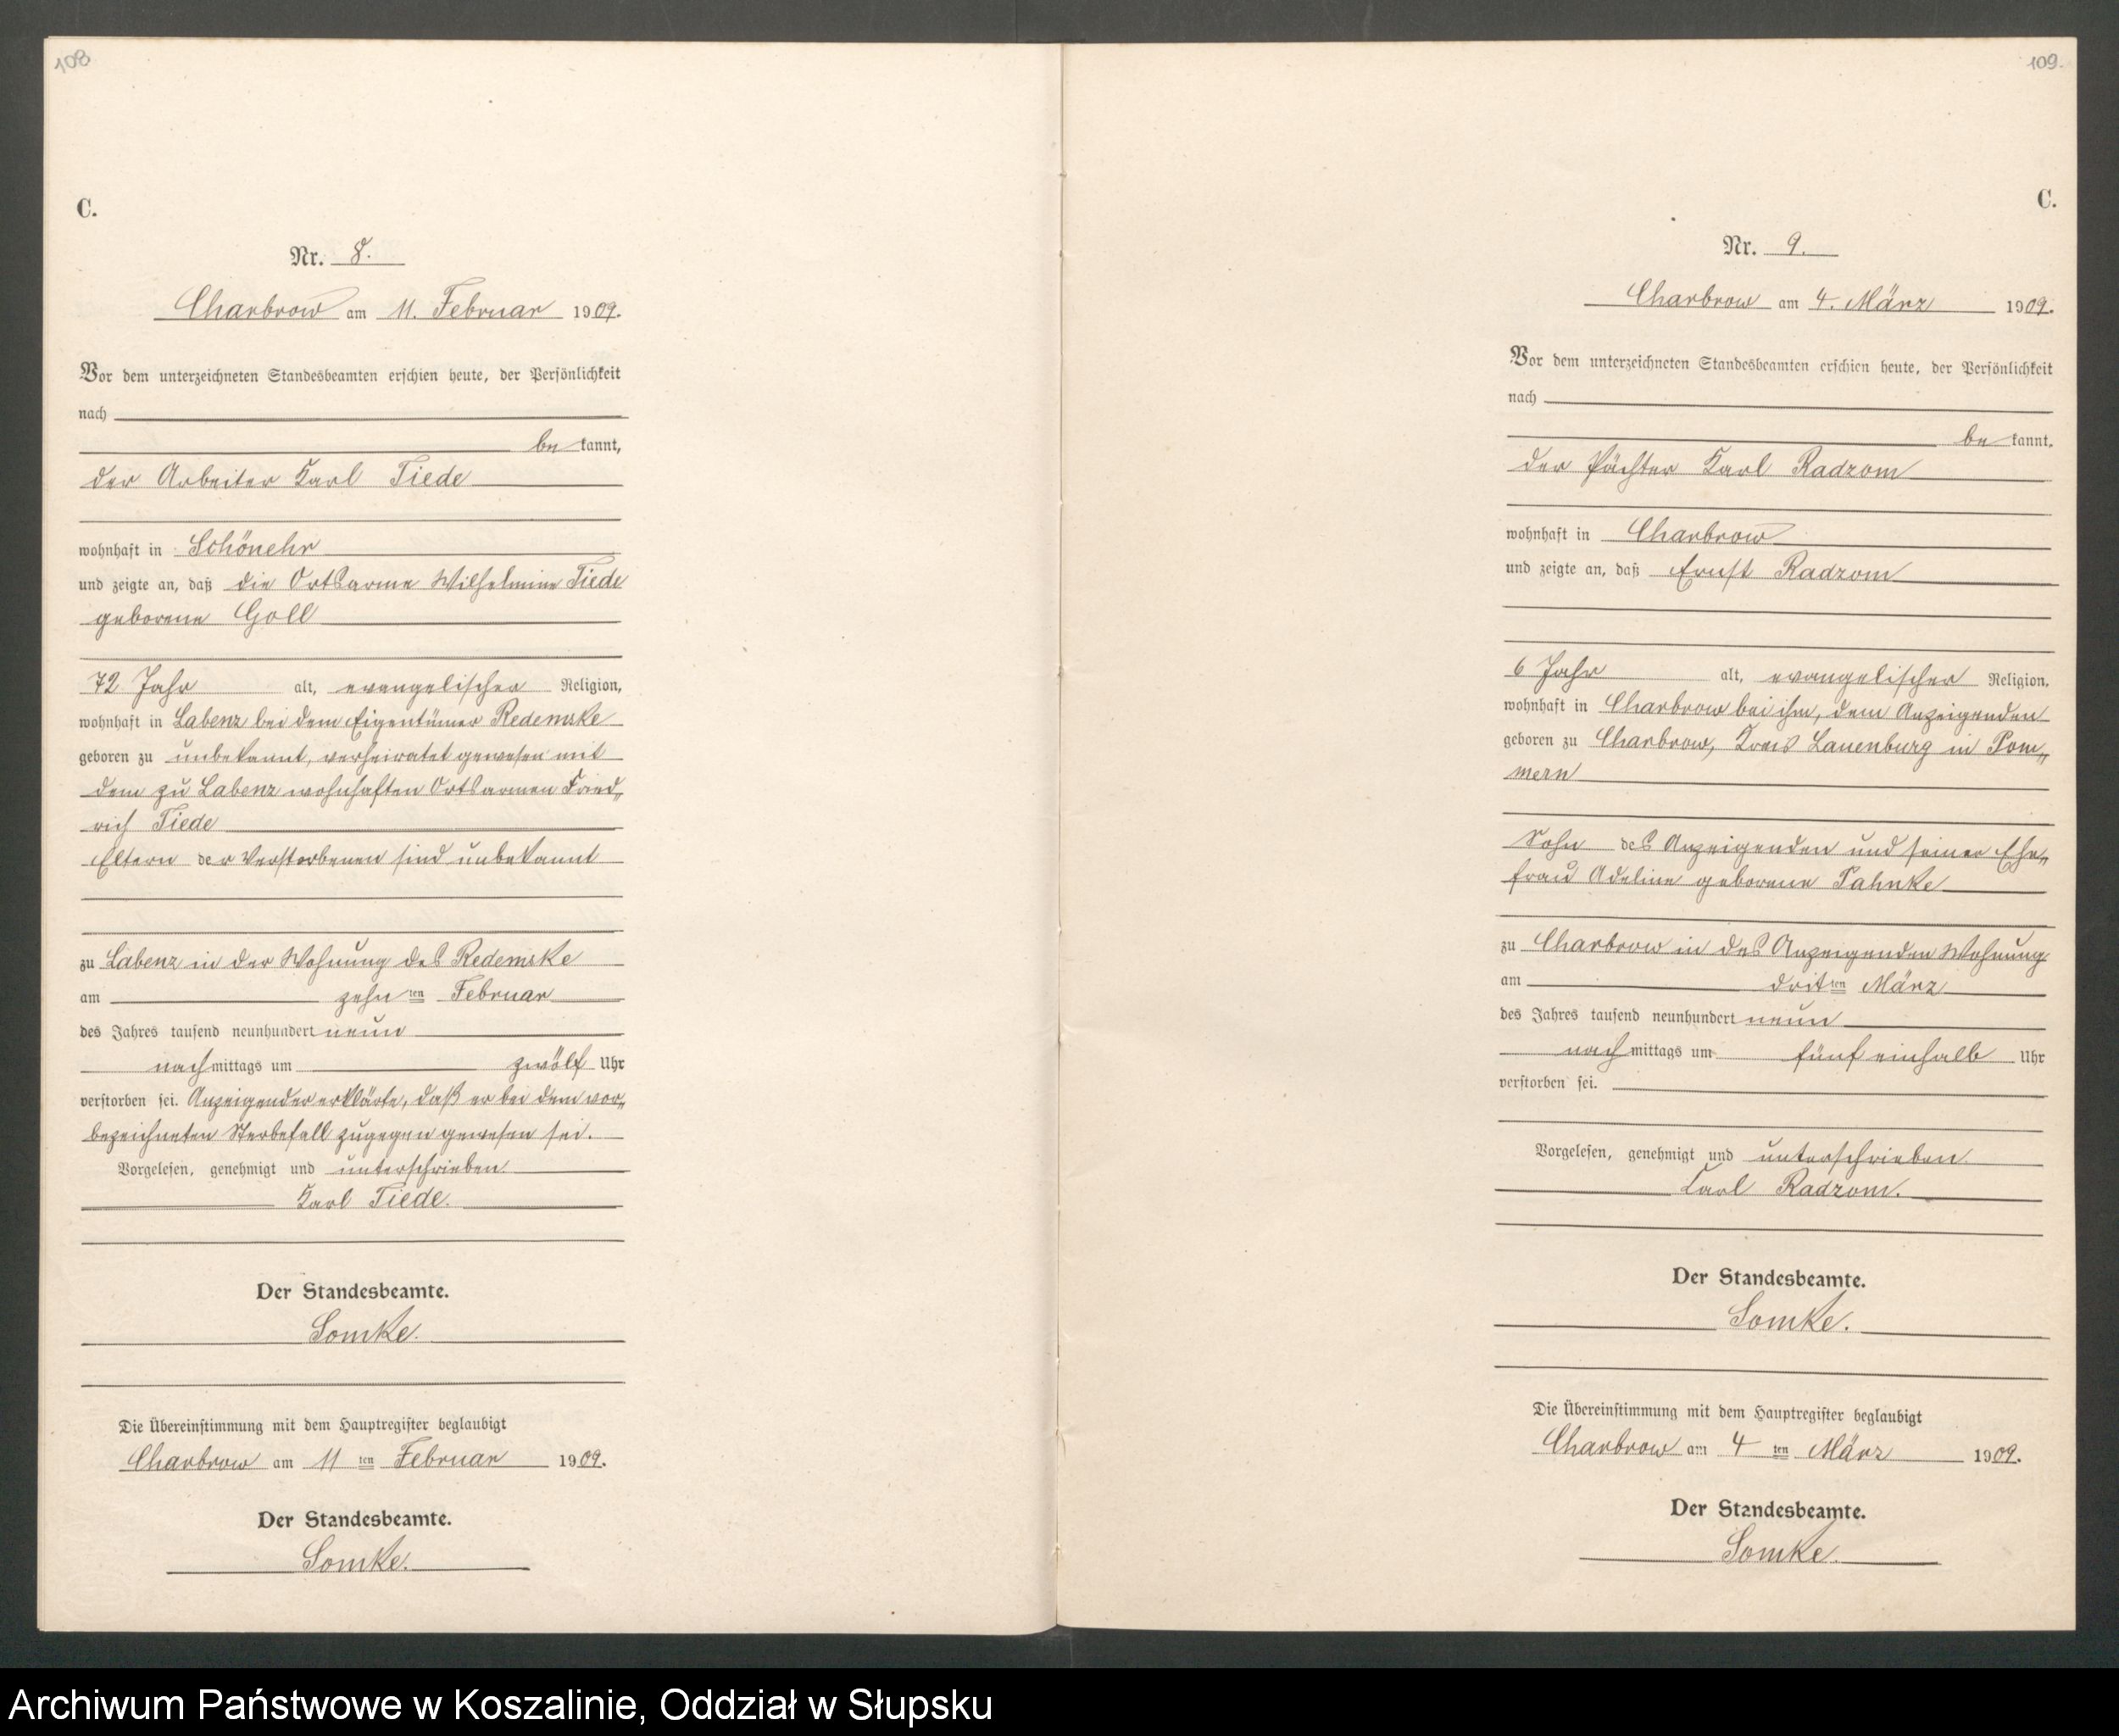 108
C.
Nr. 8.
Charbrow am 11. Februar 1909.
Vor dem unterzeichneten Standesbeamten erschien heute, der Persönlichkeit
nach
be kannt,
der Arbeiter Karl Tiede
wohnhaft in Schönehr
und zeigte an, daß die Ortsarme Wilhelmine Tiede
geborene Goll
72 Jahr alt, evangelischer Religion,
wohnhaft in Labenz bei dem Eigentümer Redemske
geboren zu unbekannt, verheiratet gewesen mit
dem zu Labenz wohnhaften Ortsarmen Fried„
rich Tiede
Eltern der Verstorbenen sind unbekannt
zu Labenz in der Wohnung des Redemske
am zehnten Februar
des Jahres tausend neunhundert neun
nachmittags um zwölf Uhr
verstorben sei. Anzeigender erklärte, daß er bei dem vor„
bezeichneten Sterbefall zugegen gewesen sei.
Vorgelesen, genehmigt und unterschrieben.
Karl Tiede.
Der Standesbeamte.
Somke.
Die Übereinstimmung mit dem Hauptregister beglaubigt
Charbrow am 11ten Februar 1909.
Der Standesbeamte.
Somke.
109.
C.
Nr. 9.
Charbrow am 4. März 1909.
Vor dem unterzeichneten Standesbeamten erschien heute, der Persönlichkeit
nach
be kannt,
der Pächter Karl Radzom
wohnhaft in Charbrow
und zeigte an, daß Ernst Radzom
6 Jahr alt, evangelischer Religion,
wohnhaft in Charbrow bei ihm, dem Anzeigenden
geboren zu Charbrow, Kreis Lauenburg in Pom„
mern
Sohn des Anzeigenden und seiner Ehe„
frau Adeline geborene Pahnke
zu Charbrow in des Anzeigenden Wohnung
am dritten März
des Jahres tausend neunhundert neun
nachmittags um fünf einhalb Uhr
verstorben sei.
Vorgelesen, genehmigt und unterschrieben.
Karl Radzom.
Der Standesbeamte.
Somke.
Die Übereinstimmung mit dem Hauptregister beglaubigt
Charbrow am 4ten März 1909.
Der Standesbeamte.
Somke.
Archiwum Państwowe w Koszalinie, Oddział w Słupsku